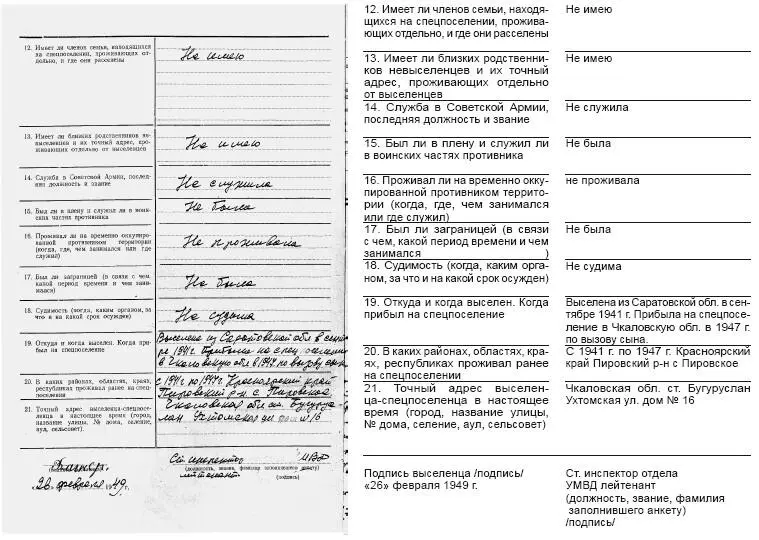 12. Имеет ли членов семьи, находящихся
на спецпоселении, проживающих от-
дельно, и где они расселены
Не имею
13. Имеет ли близких родственников не-
выселенцев и их точный адрес, про-
живающих отдельно от выселенцев
Не имею
14. Служба в Советской Армии, послед-
няя должность и звание
Не служила
15. Был ли в плену и служил ли в воин-
ских частях противника
Не была
16. Проживал ли на временно оккупиро-
ванной противником территории
(когда, где, чем занимался или где
служил)
Не проживала
17. Был ли заграницей (в связи с чем,
какой период времени и чем зани-
мался)
Не была
18. Судимость (когда, каким органом, за
что и на какой срок осужден)
Не судима
19. Откуда и когда выселен. Когда при-
был на спецпоселение
Выселена из Саратовской обл в сентяб
ре 1941г. Прибыла на спец. поселение
в Чкаловскую обл в 1947 по вызову сына
20. В каких районах, областях, краях,
республиках проживал ранее на спец-
поселении
с 1941г по 1947г. Красноярский край
Пировский р-н с. Пировское
21. Точный адрес выселенца-спецпоселе-
нца в настоящее время (город,
название улицы, № дома, селение,
аул, сельсовет)
Чкаловская обл ст. Бугурус-
лан. Ухтомская ул дом №16
Ст инспектор МВД
лейтенант
(должность, звание, фамилия заполнившего анкету)
(подпись)
„26" февраля 1949г.
12. Имеет ли членов семьи, находя-
щихся на спецпоселении, прожива-
ющих отдельно, и где они расселены
Не имею
13. Имеет ли близких родственни-
ков невыселенцев и их точный
адрес, проживающих отдельно
от выселенцев
Не имею
14. Служба в Советской Армии,
последняя должность и звание
Не служила
15. Был ли в плену и служил ли
в воинских частях противника
Не была
16. Проживал ли на временно окку-
пированной противником террито-
рии (когда, где, чем занимался
или где служил)
не проживала
17. Был ли заграницей (в связи
с чем, какой период времени и чем
занимался )
Не была
18. Судимость (когда, каким орга-
ном, за что и на какой срок осужден)
Не судима
19. Откуда и когда выселен. Когда
прибыл на спецпоселение
Выселена из Саратовской обл. в сен-
тябре 1941 г. Прибыла на спецпосе-
ление в Чкаловскую обл. в 1947 г.
по вызову сына.
20. В каких районах, областях, кра-
ях, республиках проживал ранее
на спецпоселении
С 1941 г. по 1947 г. Красноярский
край Пировский р-н с Пировское
21. Точный адрес выселен-
ца-спецпоселенца в настоящее
время (город, название улицы,
№ дома, селение, аул, сельсовет)
Чкаловская обл. ст. Бугуруслан
Ухтомская ул. дом № 16
Подпись выселенца /подпись/
«26» февраля 1949 г.
Ст. инспектор отдела
УМВД лейтенант
(должность, звание, фамилия
заполнившего анкету)
/подпись/